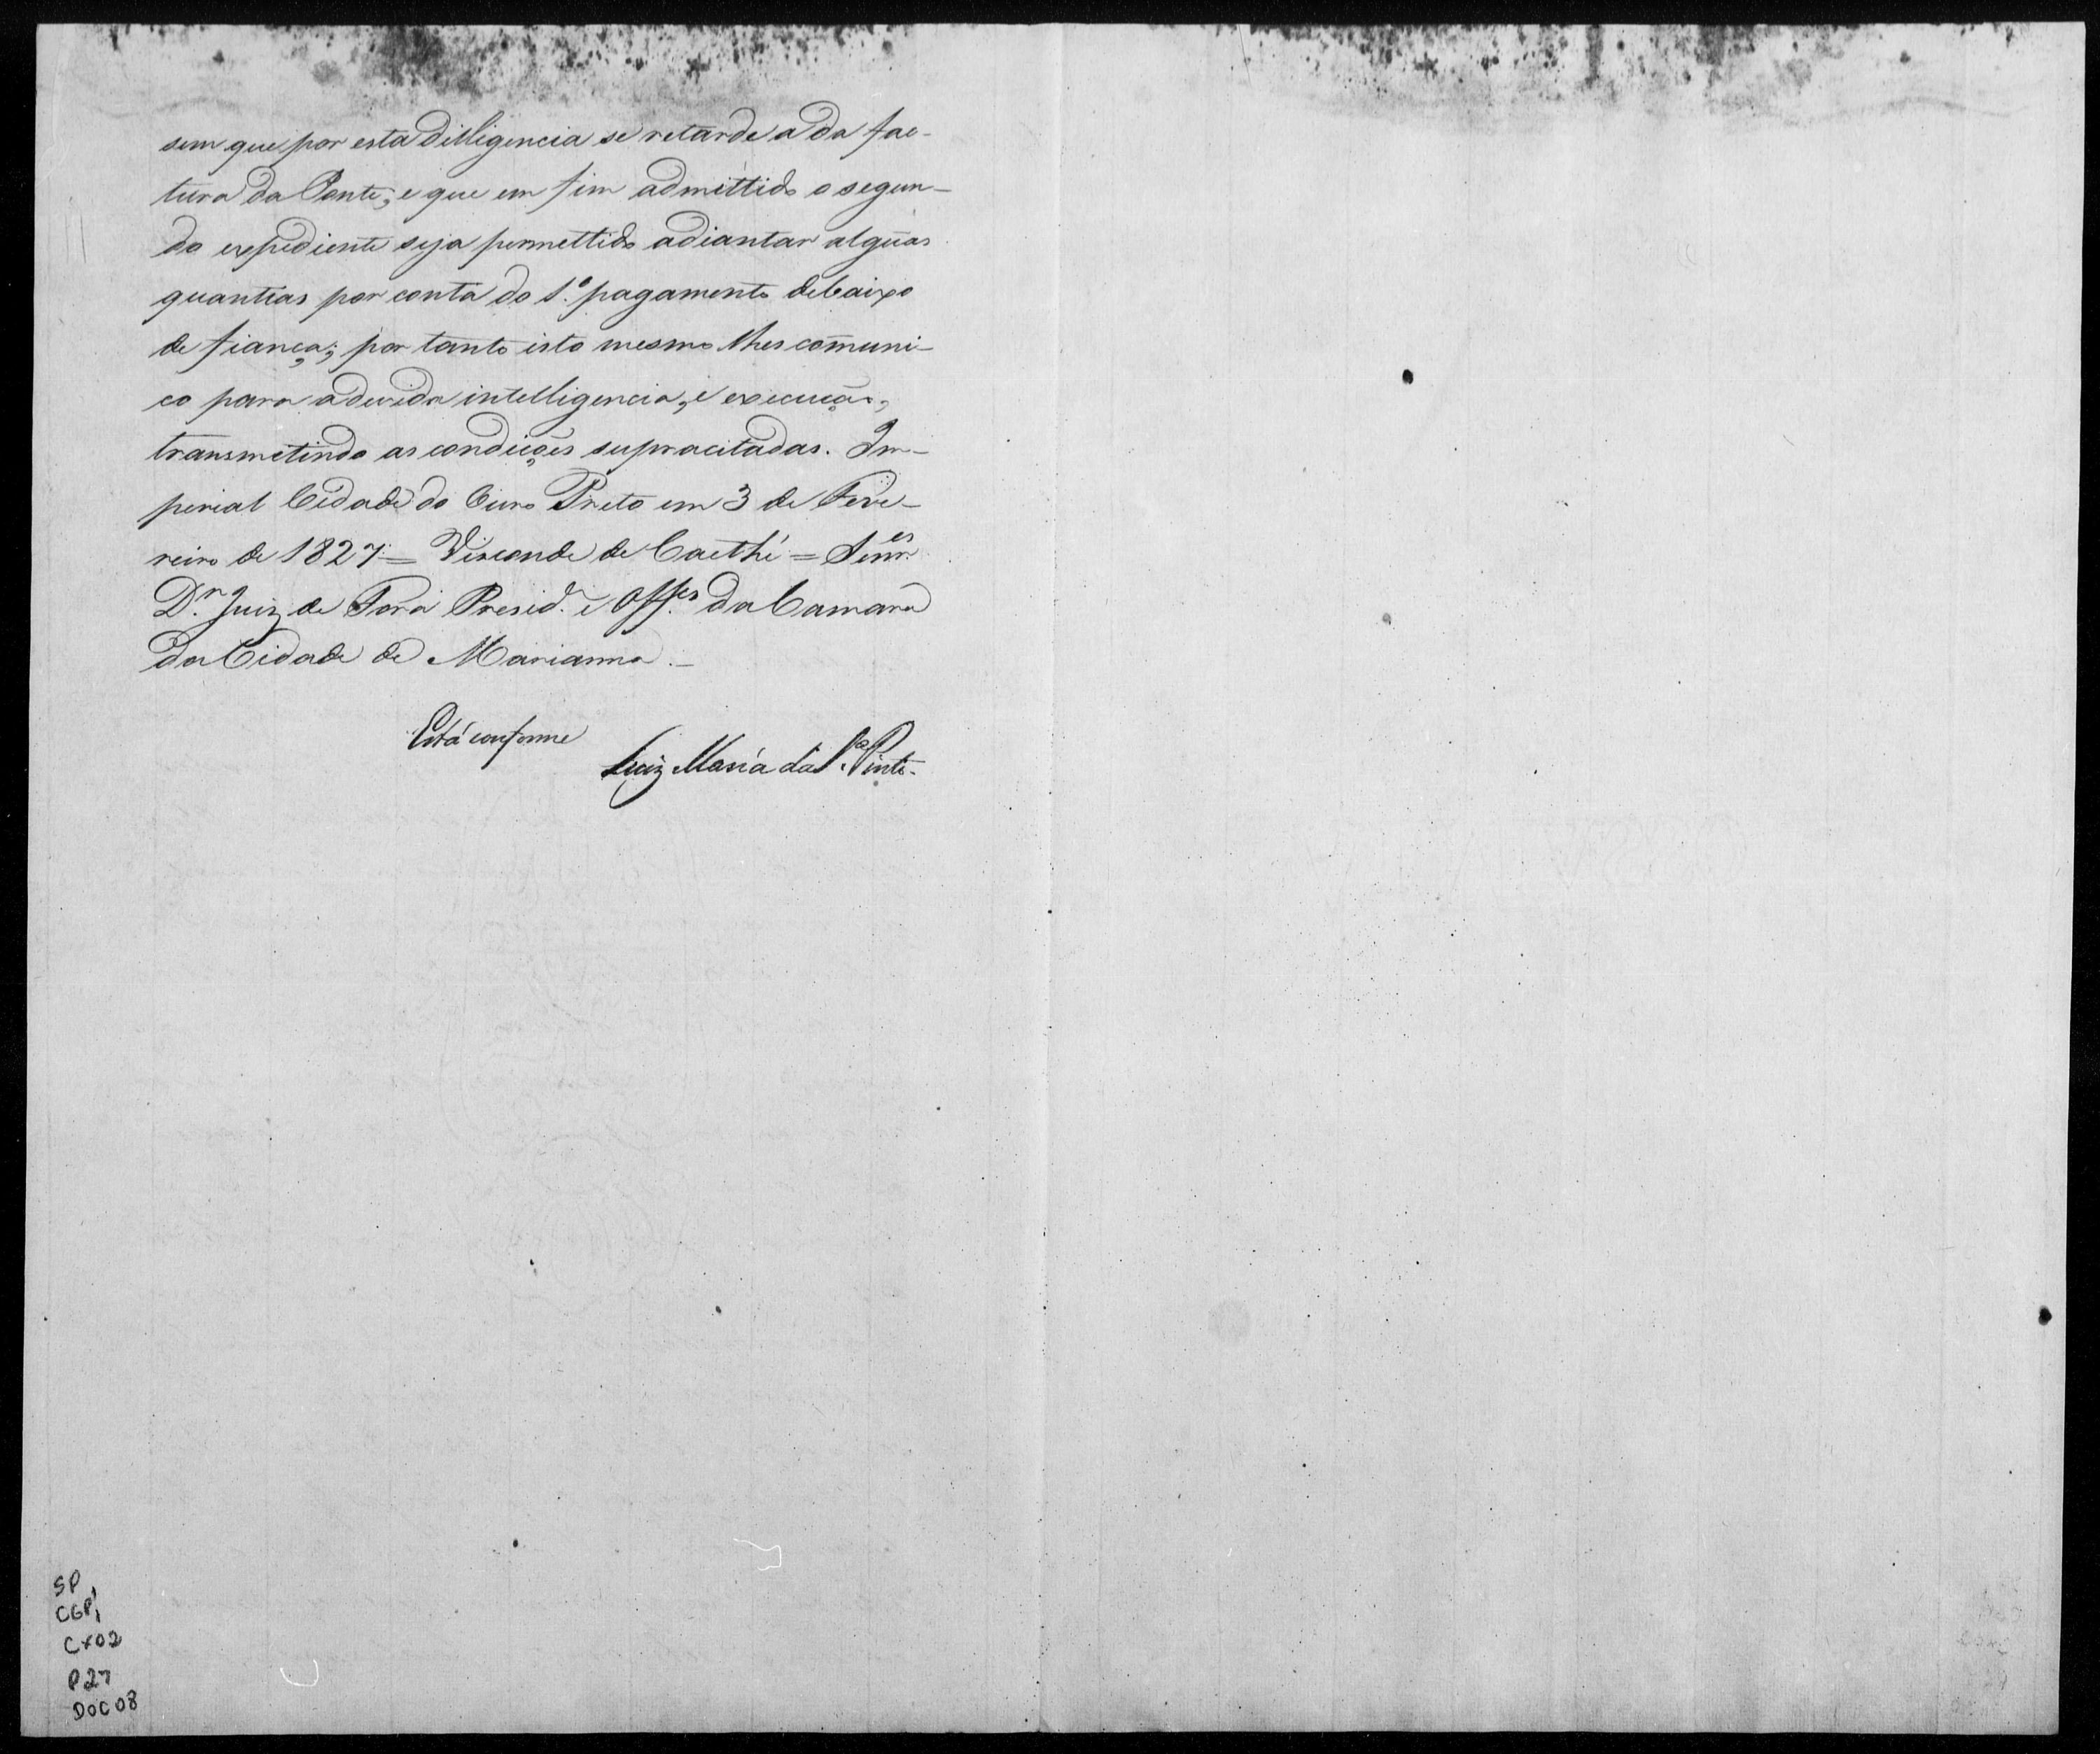 sem que por esta dilligencia se retarde a da fac-
tura da Ponte; e que em fim admittido o segun-
do expediente seja permettido adiantar algũas
quantias por conta do 1.º pagamento debaixo
de fiança; por tanto isto mesmo lhes com̃uni-
co para a devida intelligencia, e execução,
transmetindo as condições supracitadas. Im-
perial Cidade do Ouro Preto em 3 de Feve-
reiro de 1827 = Visconde de Caethé = Senr.es
D.r Juiz de Fora Presid.e e Off.es da Camara
da Cidade de Marianna.-
Está conforme
Luiz Maria da S.a Pinto.
SP
CGP1
CX02
P27
DOC 08